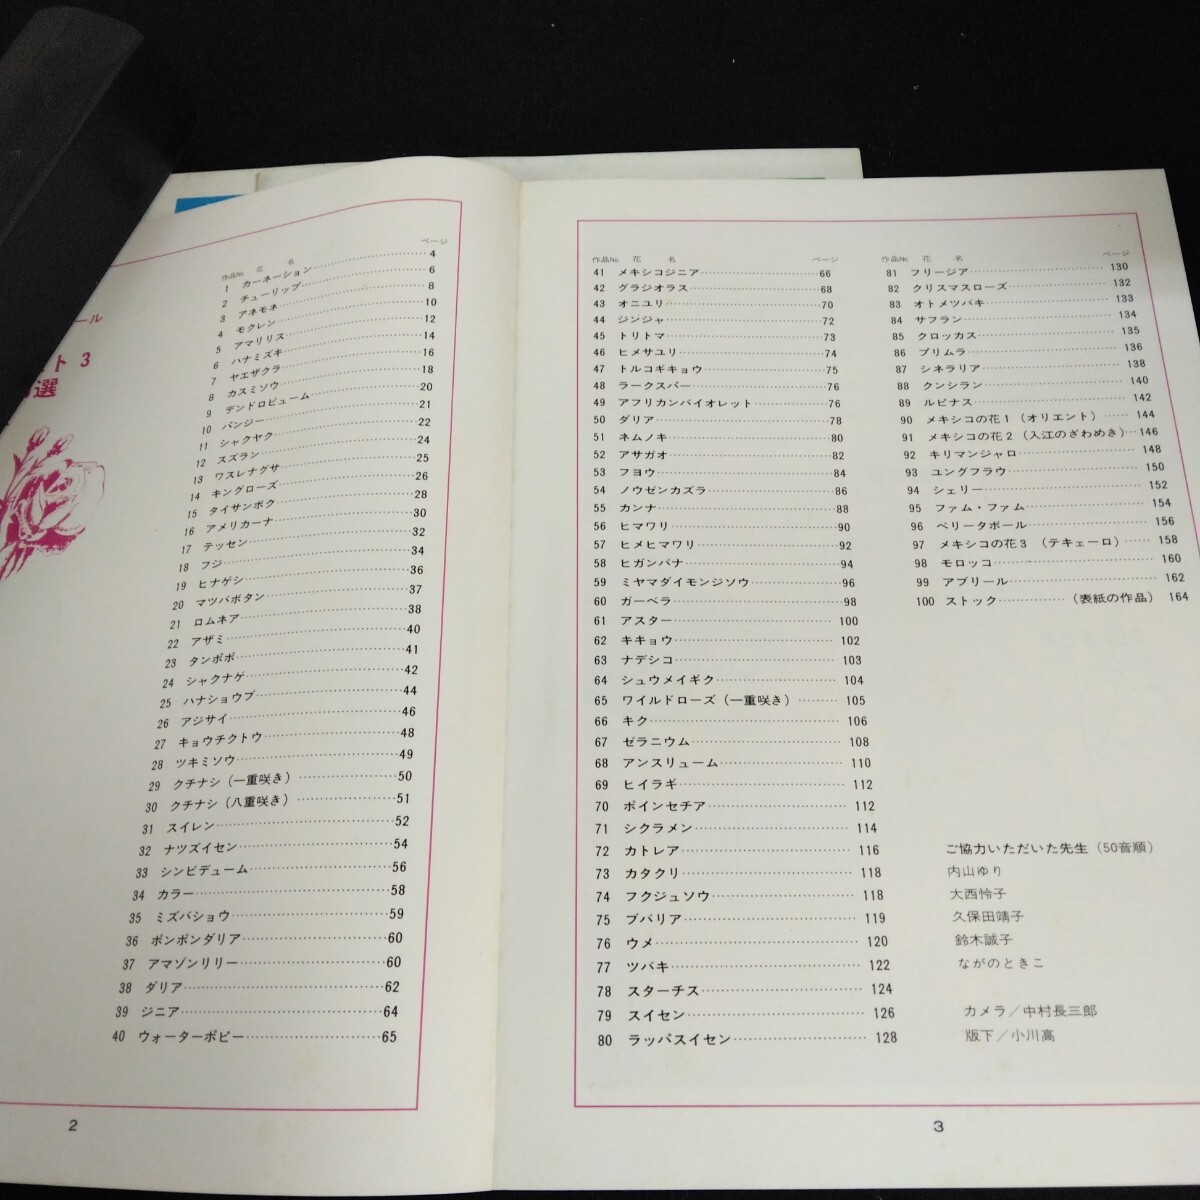 ール
ト 3
選
作品No. 花 名 ページ
1 カーネーション 4
2 チューリップ 6
3 アネモネ 8
4 モクレン 10
5 アマリリス 12
6 ハナミズキ 14
7 ヤエザクラ 16
8 カスミソウ 18
9 デンドロビューム 20
10 パンジー 21
11 シャクヤク 22
12 スズラン 24
13 ワスレナグサ 25
14 キングローズ 26
15 タイサンボク 28
16 アメリカーナ 30
17 テッセン 32
18 フジ 34
19 ヒナゲシ 36
20 マツバボタン 37
21 ロムネア 38
22 アザミ 40
23 タンポポ 41
24 シャクナゲ 42
25 ハナショウブ 44
26 アジサイ 46
27 キョウチクトウ 48
28 ツキミソウ 49
29 クチナシ（一重咲き） 50
30 クチナシ（八重咲き） 51
31 スイレン 52
32 ナツズイセン 54
33 シンビデューム 56
34 カラー 58
35 ミズバショウ 59
36 ポンポンダリア 60
37 アマゾンリリー 60
38 ダリア 62
39 ジニア 64
40 ウォーターポピー 65
2
作品No. 花 名 ページ
41 メキシコジニア 66
42 グラジオラス 68
43 オニユリ 70
44 ジンジャ 72
45 トリトマ 73
46 ヒメサユリ 74
47 トルコギキョウ 75
48 ラークスパー 76
49 アフリカンバイオレット 76
50 ダリア 78
51 ネムノキ 80
52 アサガオ 82
53 フヨウ 84
54 ノウゼンカズラ 86
55 カンナ 88
56 ヒマワリ 90
57 ヒメヒマワリ 92
58 ヒガンバナ 94
59 ミヤマダイモンジソウ 96
60 ガーベラ 98
61 アスター 100
62 キキョウ 102
63 ナデシコ 103
64 シュウメイギク 104
65 ワイルドローズ（一重咲き） 105
66 キク 106
67 ゼラニウム 108
68 アンスリューム 110
69 ヒイラギ 112
70 ポインセチア 112
71 シクラメン 114
72 カトレア 116
73 カタクリ 118
74 フクジュソウ 118
75 ブバリア 119
76 ウメ 120
77 ツバキ 122
78 スターチス 124
79 スイセン 126
80 ラッパスイセン 128
作品No. 花 名 ページ
81 フリージア 130
82 クリスマスローズ 132
83 オトメツバキ 133
84 サフラン 134
85 クロッカス 135
86 プリムラ 136
87 シネラリア 138
88 クンシラン 140
89 ルピナス 142
90 メキシコの花1（オリエント） 144
91 メキシコの花2（入江のざわめき） 146
92 キリマンジャロ 148
93 ユングフラウ 150
94 シェリー 152
95 ファム・ファム 154
96 ベリータボール 156
97 メキシコの花3（テキェーロ） 158
98 モロッコ 160
99 アプリール 162
100 ストック （表紙の作品） 164
ご協力いただいた先生（50音順）
内山ゆり
大西怜子
久保田靖子
鈴木誠子
ながのときこ
カメラ／中村長三郎
版下／小川高
3